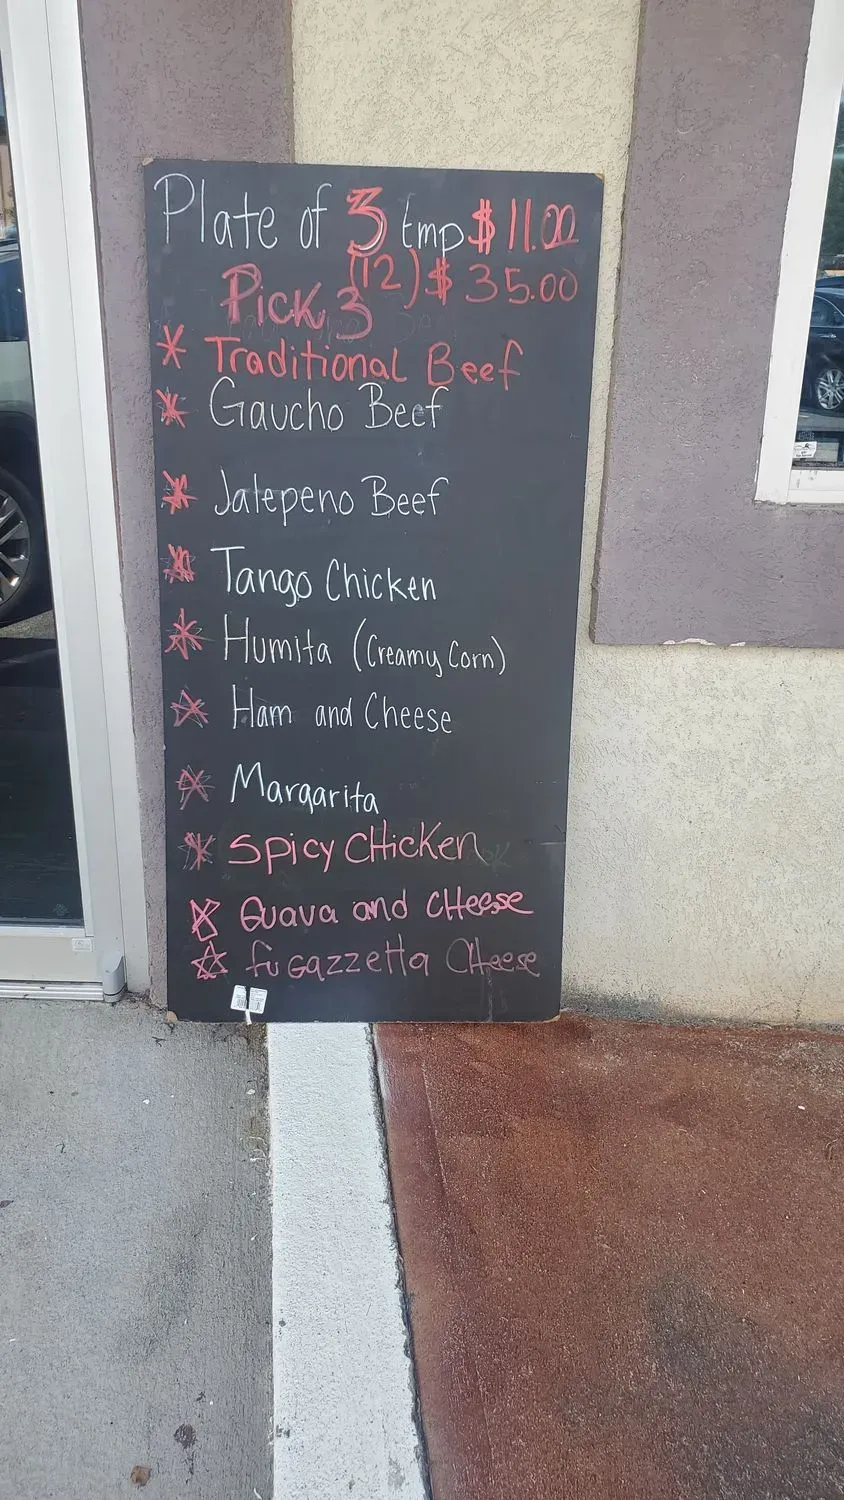 Plate of 3 Emp $11.00
(12) $35.00
Pick 3
* Traditional Beef
* Gaucho Beef
* Jalepeno Beef
* Tango Chicken
* Humita (Creamy Corn)
* Ham and Cheese
* Margarita
* Spicy CHicKen
* Guava and CHeese
* fugazzetta CHeese